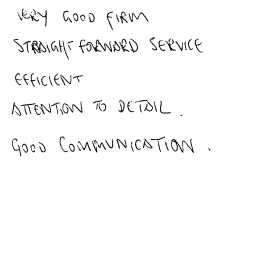 VERY GOOD FIRM
STRAIGHT FORWARD SERVICE
EFFICIENT
ATTENTION TO DETAIL.
GOOD COMMUNICATION.